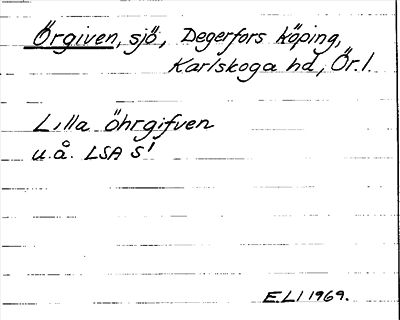 Örgiven, sjö, Degerfors köping,
Karlskoga hd, Ör. l.
Lilla Öhrgifven
u.å. LSA S'
E.L. 1969.